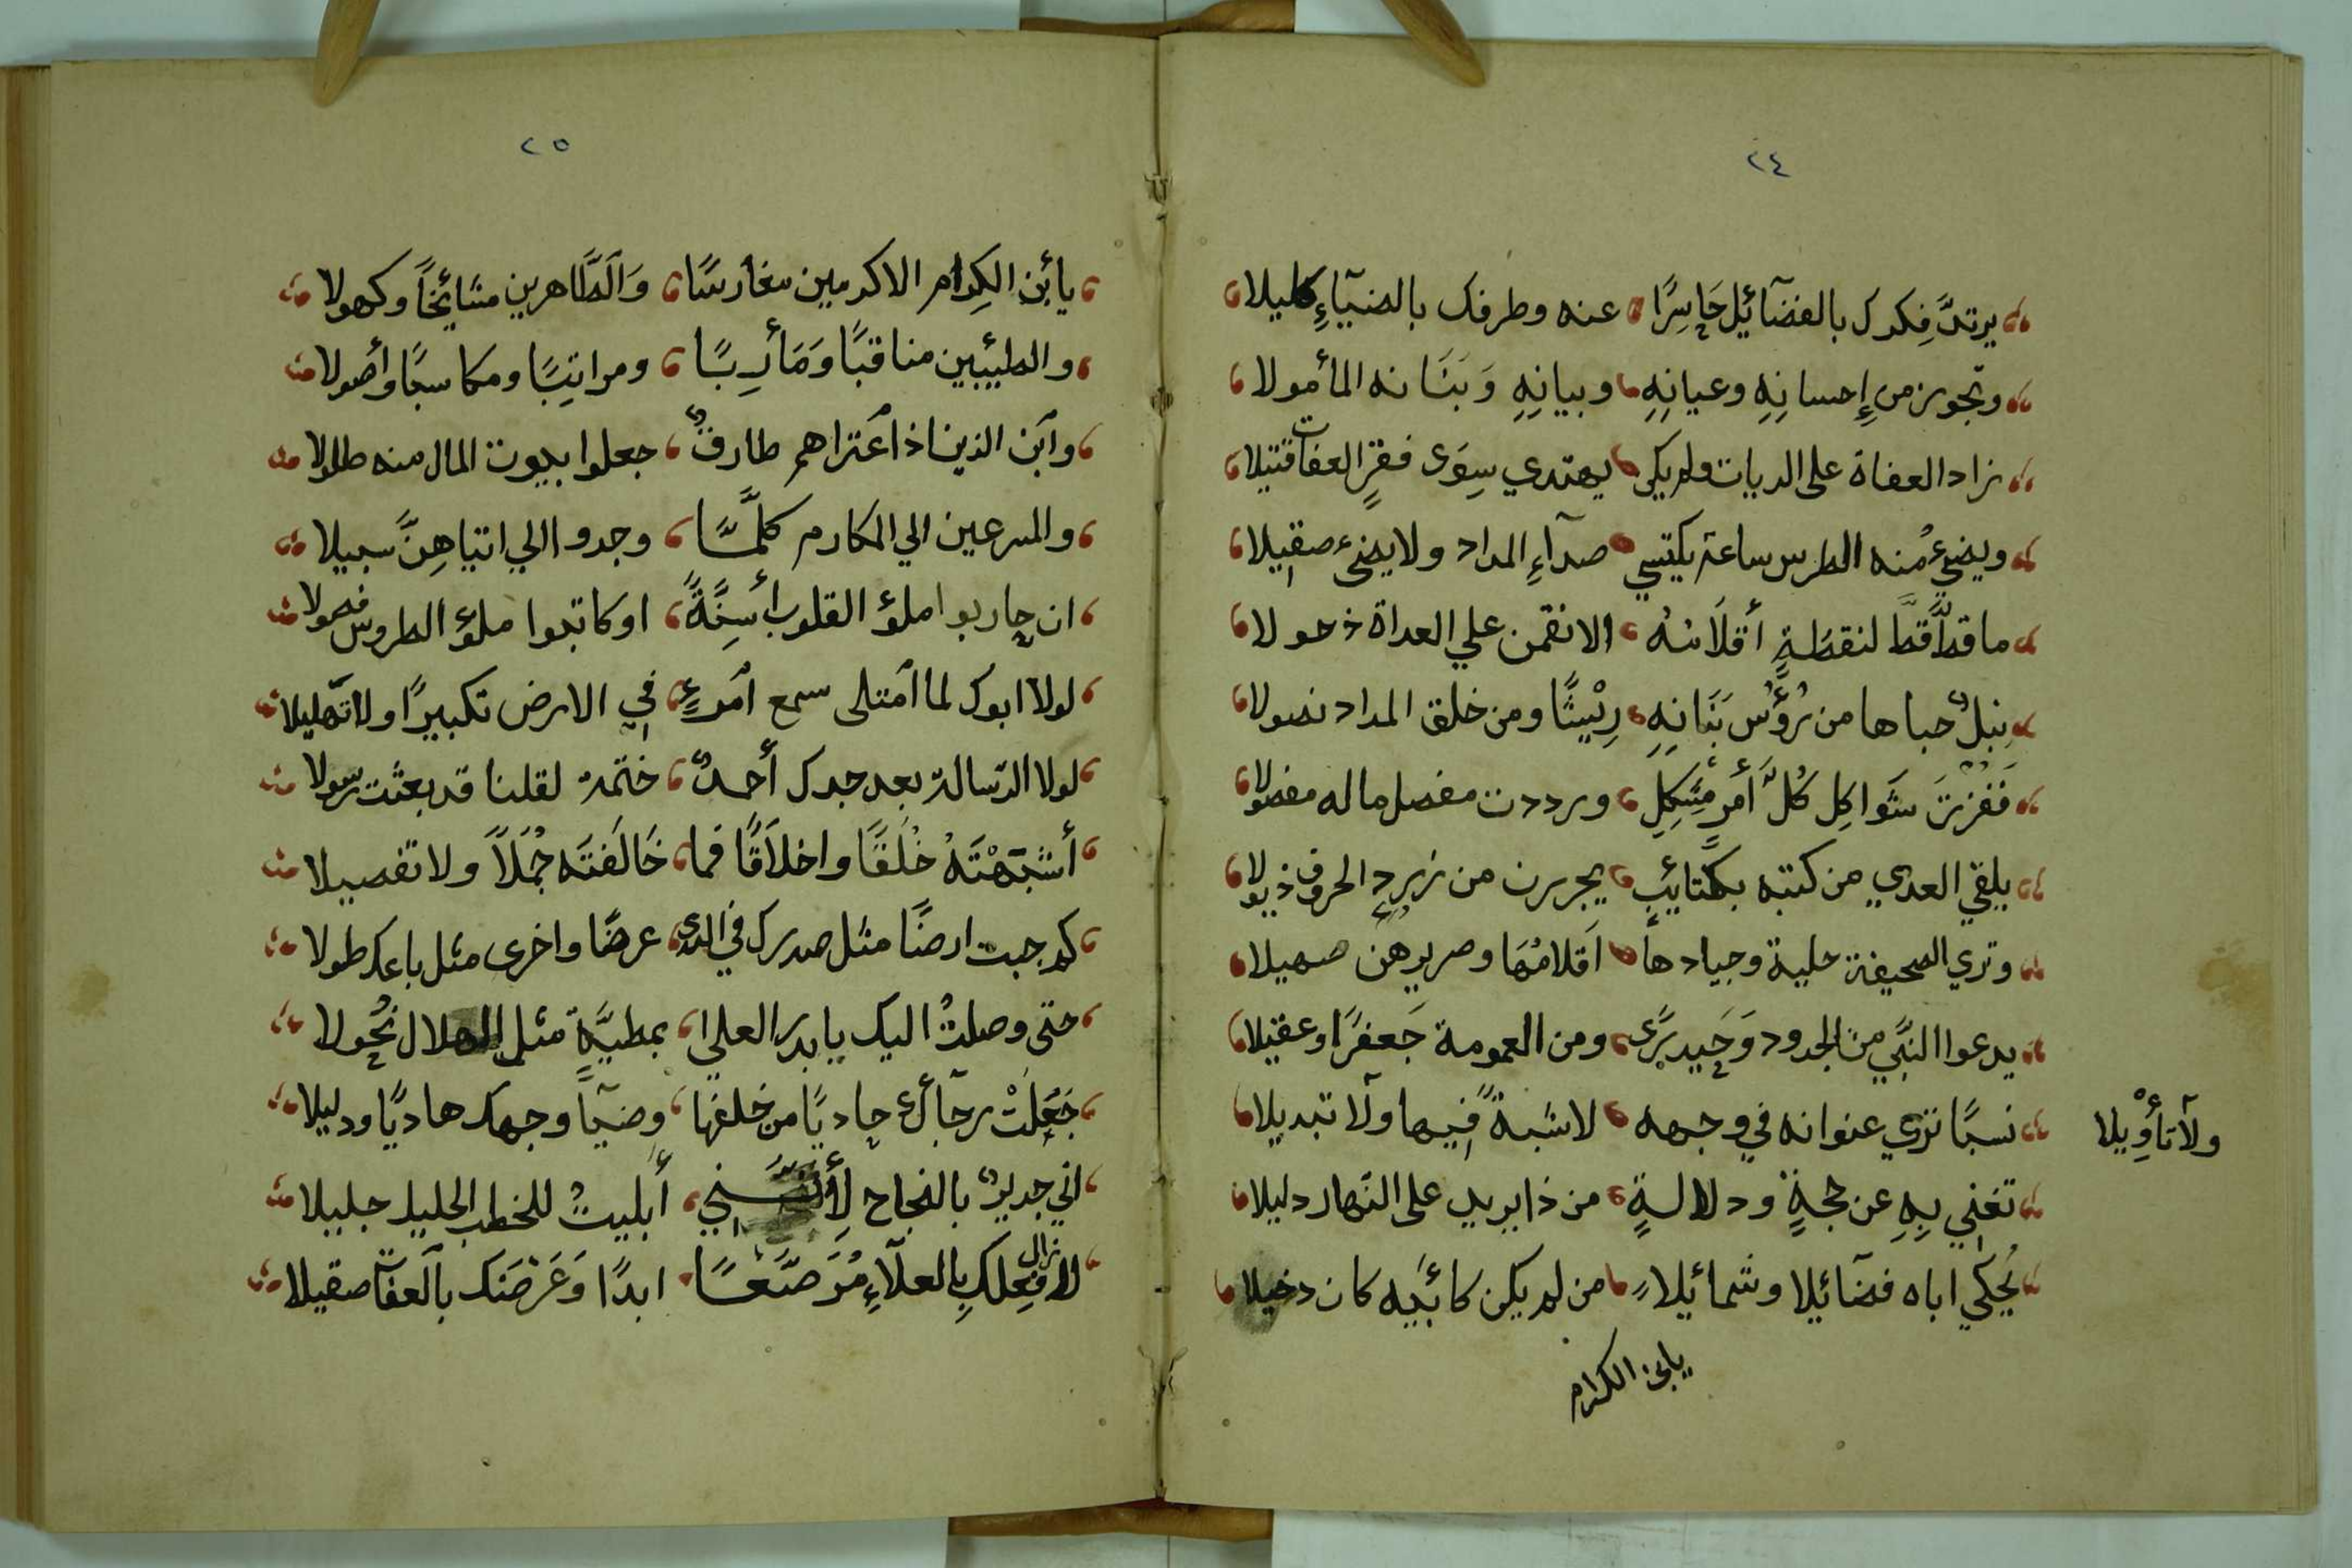 ٢٤
يرتدَّ فِكرك بالفضآئيل حَاسِرًا عنه وطرفك بالضيآءِ كليلا
وتجوز من إِحسانِهِ وعيانِهِ وبيانِهِ وَبَنَانه المأمولا
زاد العفاة على الديات ولم يكن يهتدي سِوَى فقرٍ العفات قتيلا
ويضيءُ منه الطرس ساعة يكتسي صدآءِ المداد ولا يضىء صقيلا
ما قطَّ قطَّ لنقطةٍ أقلَامُهُ الا نقمن علي العداة ذحولا
نبلٌ حباها من رُؤُسِ بَنَانِهِ رِيْشًا ومن خلق المداد نصولا
فَفَزتَ شَواكِل كُلَّ أمرٍ مُشكِلٍ ورددت مفصل ماله مفصولا
يلقي العدي من كتبه بكتايئبٍ يجررن من زردِ الحروف ذيولا
وتري الصحيفة حلبة وجيادها أقلامُهَا وصريرهن صهيلا
يدعوا النبَّي من الجدود وَحَيدرًى ومن العمومة جَعفرًا وعقيلا
نسبًا تري عنوانه في وجهه لا شبهةً فيها ولآ تبديلا
ولآ تأوِيلا
تغني بِهِ عن حجةٍ ودلالةٍ من ذا يريد على النهار دليلا
يُحكي اباه فضآئيلا وشمائيلاً من لم يكن كأبيه كان دخيلا
يابن الكرام
٢٥
يا أبن الكِرام الاكرمين مغارسًا وَالطَّاهرين مشائخًا وكهولا
والطيِّبين مناقبًا وَمَأربًا ومراتبًا ومكاسبًا وأصولا
وابن الذين اذ أعتراهم طارقٌ جعلوا بيوت المال منه طلولا
والمسرعين الي المكارم كلَّمَا وجدوا الي اتياهِنَّ سبيلا
ان حاربوا املؤ القلوب أسِنَّةً او كاتبوا ملؤ الطروس فحولا
لولا ابوك لما أمتلى سمع أمرءٍ في الارض تكبيرًا ولا تهليلا
لولا الرّسالة بعد جدك أحمدٌ ختمة لقلنا قد بعثت رسولا
أشبَهْتَهُ خُلَقًا واخلاَقًا فما خَالَفتَه جُمَلاً ولا تفصيلا
كم جبت ارضًا مثل صدرك في الندى عرضًا واخرى مثل باعك طولا
حتى وصلتُ اليك يا بدر العلي بمطيَّةٍ مثل الهلال نحُولا
جَعَلتْ رجآكَ حاديًا من خلفها وضيآ وجهك هاديًا ودليلا
اني جديرٌ بالنجاح لأنني أبليتُ للخطب الجليل جليلا
لا زال فِعلكِ بالعلآءِ مُرَصَّعًا ابدًا وَعَرْضَنك بالعفآ صقيلا